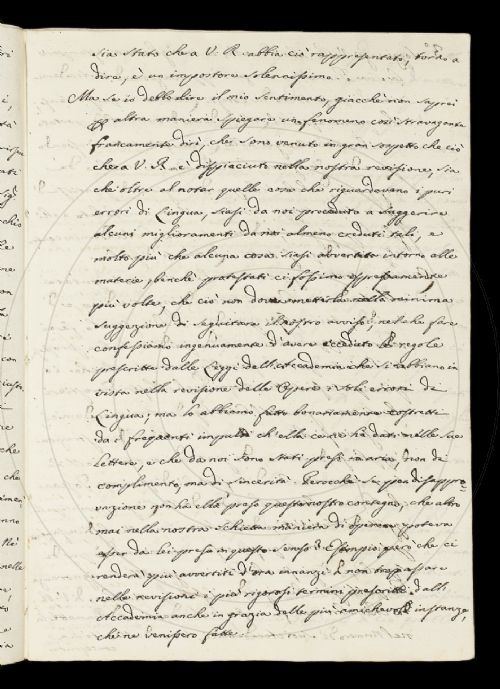 sia stato che a V. R. abbia ciò rappresentato, torno a
dire, è un impostore solennissimo.
Ma se io debbo dire il mio sentimento, giacchè non saprei
altra maniera spiegare un fenomeno così stravagante
francamente dirò, che sono venuto in gran sospetto che ciò
che a V. R. è dispiaciuto nella nostra revisione, sia
che oltre al notar quelle cose che riguardavano i puri
errori di Lingua, siasi da noi proceduto a suggerire
alcuni miglioramenti da noi almeno creduti tali, e
molto più che alcuna cosa siasi avvertita intorno alle
materie, benchè protestati ci fossimo espressamente
più volte, che ciò non dove metterla nella minima
suggezione di seguitare il nostro avviso; nel che fare
confessiamo ingenuamente d'avere ecceduto le regole
prescritte dalle Leggi dell'Accademia che si abbiano in
vista nella revisione delle Opere i soli errori di
Lingua; ma lo abbiamo fatto bonariamente costretti
da i frequenti impulsi ch'ella ce ne ha dati nelle sue
Lettere, e che da noi sono stati presi in aria, non di
complimento, ma di sincerità. Perocchè se per disappro-
vazione non ha ella preso questo nostro contegno, che altro
mai nella nostra schietta maniera di poteva
esser da lei preso in questo senso? E sempio però che ci
renderà più avvertiti d'ora innanzi a non trapassare
nelle revisioni i più rigorosi termini prescritti dall'
Accademia anche in grazia delle più amichevoli instanze,
che ne venissero fatte.